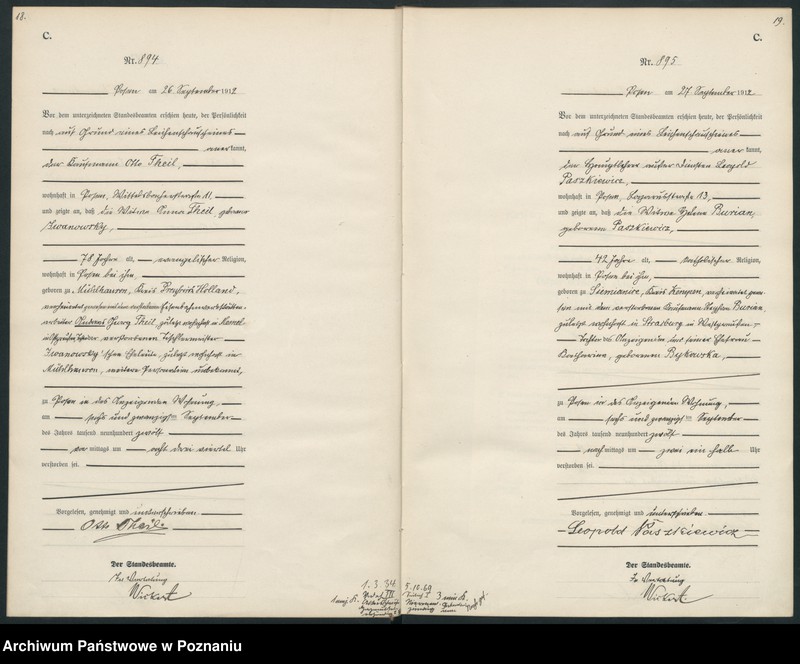 18.
C.
Nr. 894
Posen am 26. September 1912
Vor dem unterzeichneten Standesbeamten erschien heute, der Persönlichkeit
nach auf Grund eines Leichenschauscheines
anerkannt,
der Kaufmann Otto Theil,
wohnhaft in Posen, 11.
und zeigte an, daß die Witwe Anna Theil, geborne
Iwanowsky,
78 Jahre alt, evangelischer Religion,
wohnhaft in Posen bei ihm,
geboren zu Mühlhausen, Kreis Preußisch Holland,
verheiratet gewesen mit dem verstorbenen
arbeiter Georg Theil, zuletzt wohnhaft in
Tochter des verstorbenen Tischlermeister
Iwanowsky'schen Eheleute, zuletzt wohnhaft in
Mühlhausen, weitere Personalien unbekannt,
zu Posen in des Anzeigenden Wohnung,
am sechs und zwanzigsten September
des Jahres tausend neunhundert zwölf
vormittags um acht drei viertel Uhr
verstorben sei.
Vorgelesen, genehmigt und unterschrieben
Otto Theil
Der Standesbeamte.
In Vertretung
Wickert.
1. 3. 34
19.
C.
Nr. 895
Posen am 27. September 1912
Vor dem unterzeichneten Standesbeamten erschien heute, der Persönlichkeit
nach auf Grund eines Leichenschauscheines
anerkannt,
der Hauptlehrer außer Diensten Leopold
Paszkiewicz,
wohnhaft in Posen, 13,
und zeigte an, daß die Witwe Helene Burian,
geborenen Paszkiewicz,
42 Jahre alt, katholischer Religion,
wohnhaft in Posen bei ihm,
geboren zu Siemianice, Kreis Kempen, verheiratet gewe-
sen mit dem verstorbenen Kaufmann Stephan Burian,
zuletzt wohnhaft in Strasburg in Westpreußen
Tochter des Anzeigenden und seiner Ehefrau
Katharina, geborenen Bykowska,
zu Posen in des Anzeigenden Wohnung,
am sechs und zwanzigsten September
des Jahres tausend neunhundert zwölf
nachmittags um zwei ein halb Uhr
verstorben sei.
Vorgelesen, genehmigt und unterschrieben
Leopold Paszkiewicz
Der Standesbeamte.
In Vertretung
Wickert.
5.10.69
Archiwum Państwowe w Poznaniu